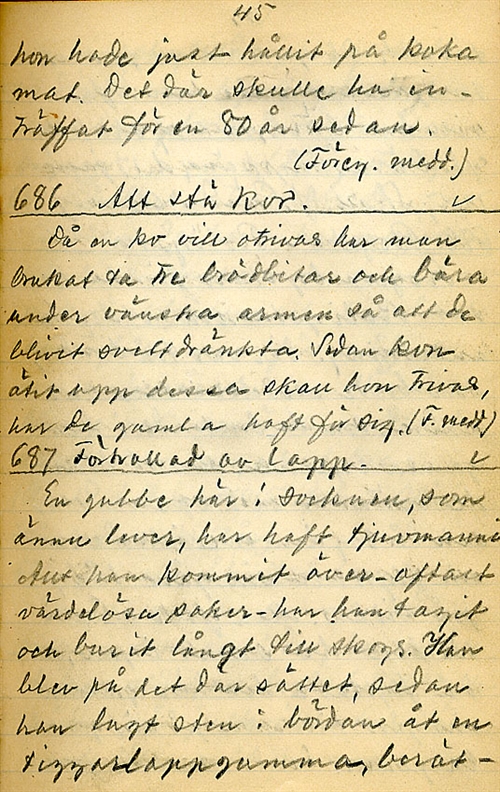 45
hon hade just hållit på koka
mat. Det där skulle ha in-
träffat för en 80 år sedan.
(Föreg. medd.)
686 Att stä kor.
Då en ko vill otrivas har man
brukat ta tre brödbitar och bära
under vänstra armen så att de
blivit svettdränkta. Sedan kon
ätit upp dessa skall hon trivas,
har de gamla haft för sig. (F. medd.)
687 Förtrollad av lapp.
En gubbe här i socknen, som
ännu lever, har haft tjuvmanna
Allt han kommit över - oftast
värdelösa saker - har han tagit
och burit långt till skogs. Han
blev på det där sättet, sedan
han lagt sten i bördan åt en
tiggarlappgumma, berät-